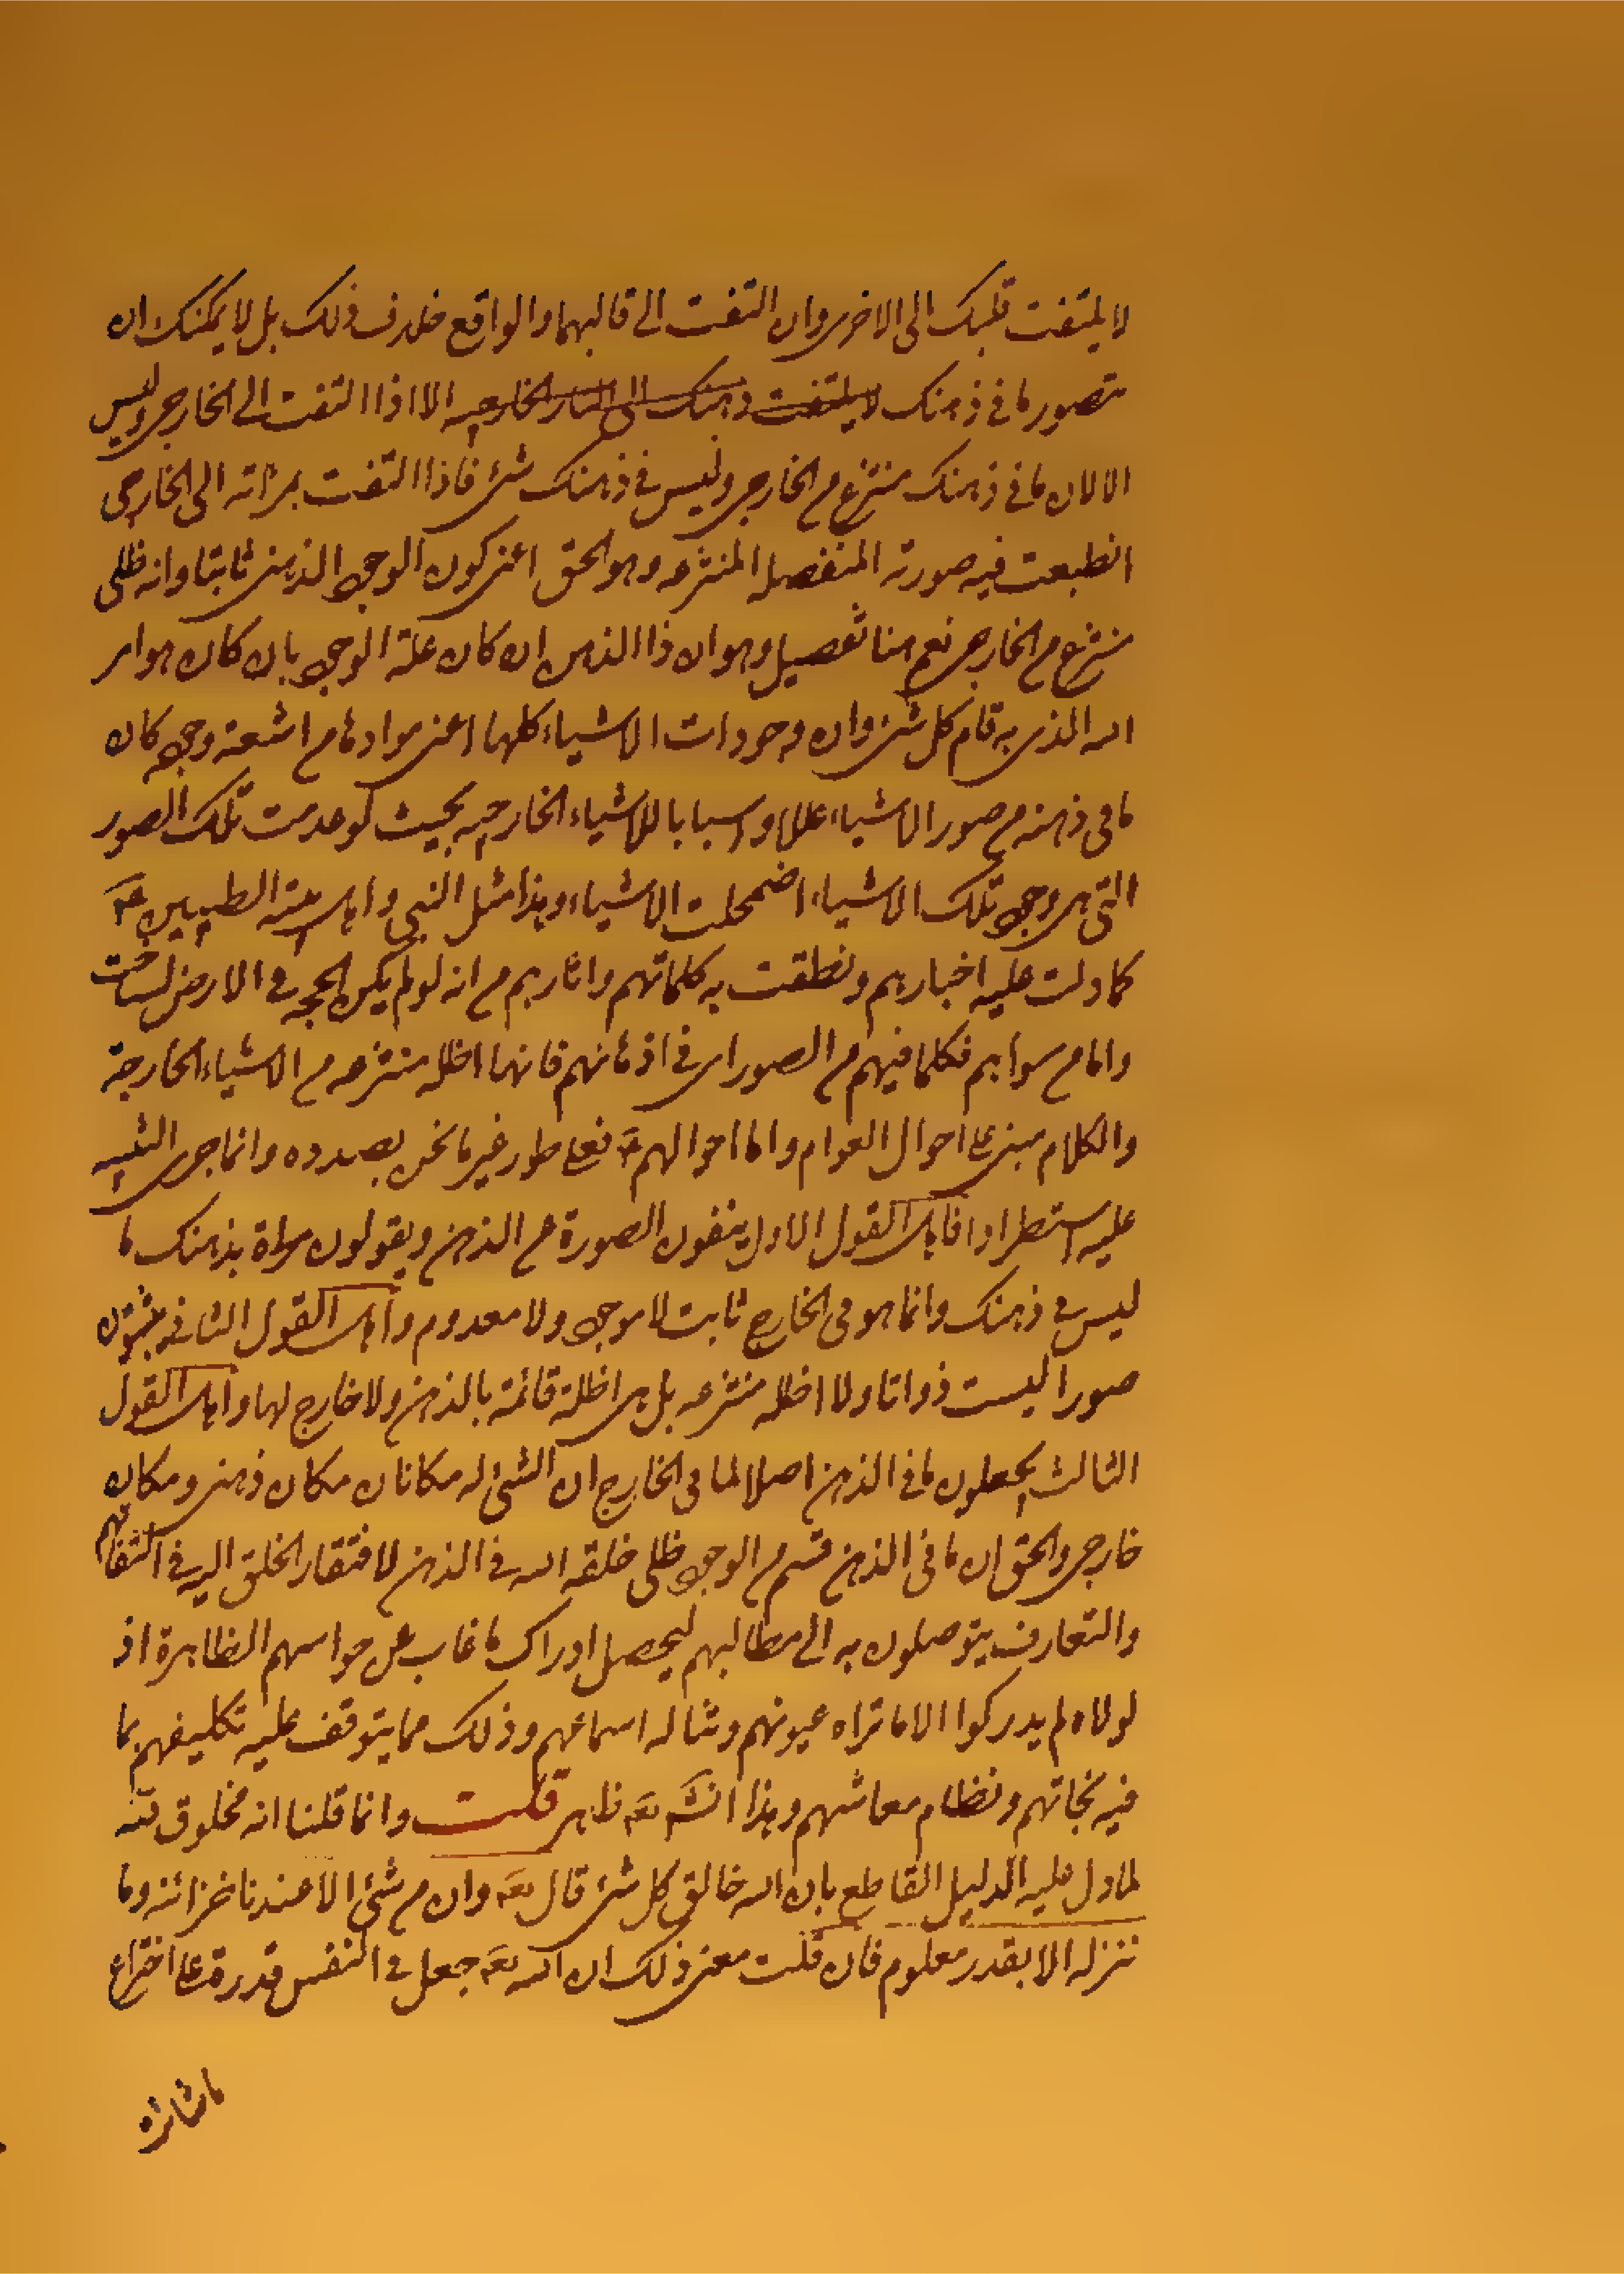 لا يلتفت قلبك الى الاخرى وان التفت الى قالبهما والواقع خلاف ذلك بل لا يمكنك ان
تتصور ما في ذهنك لا يلتفت ذهنك الى النار الخارجيه الا اذا التفت الى الخارجى وليس
الا لان ما في ذهنك منتزع من الخارجى وليس في ذهنك شئ فاذا التفت بمرآته الى الخارجى
انطبعت فيه صورته المنفصله المنتزعه وهو الحق اعنى كون الوجود الذهنى ثابتا وانه ظلى
منتزع من الخارجى نعم هنا تفصيل وهو ان ذا الذهن ان كان علة الوجود بان كان هو امر
الله الذى به قام كل شئ وان وجودات الاشياء كلها اعنى موادها من اشعة وجوده كان
ما فى ذهنه من صور الاشياء عللا واسبابا للاشياء الخارجيه بحيث لو عدمت تلك الصور
التى هى وجود تلك الاشياء اضمحلت الاشياء وهذا مثل النبى واهل بيته الطيبين
كما دلت عليه اخبارهم ونطقت به كلماتهم واثارهم من انه لو لم يكن الحجه في الارض لساخت
واما من سواهم فكلما فيهم من الصور اى في اذهانهم فانها اظله منتزعه من الاشياء الخارجة
والكلام مبنى على احوال العوام واما احوالهم فعلى طور غير ما نحن بصدده وانما جرى التنبيه
عليه استطرادا فاهل القول الاول ينفون الصورة عن الذهن ويقولون مراة بذهنك ما
ليس في ذهنك وانما هو فى الخارج ثابت لا موجود ولا معدوم واهل القول الثانى يثبتون
صورا ليست ذواتا ولا اظله منتزعه بل هى اظلة قائمة بالذهن ولا خارج لها واهل القول
الثالث يجعلون ما في الذهن اصلا لما فى الخارج ان الشئ له مكانان مكان ذهنى ومكان
خارجى والحق ان ما فى الذهن قسم من الوجود ظلى خلقه الله في الذهن لافتقار الخلق اليه في التفاهم
والتعارف يتوصلون به الى مطالبهم ليحصل ادراك ما غاب عن حواسهم الظاهرة اذ
لولاه لم يدركوا الا ما تراه عيونهم وتناله اسماعهم وذلك مما يتوقف عليه تكليفهم بما
فيه نجاتهم ونظام معاشهم وهذا انشه تعه ظاهر قلت وانما قلنا انه مخلوق لله
لما دل عليه الدليل القاطع بان الله خالق كل شئ قال تعه وان من شئ الا عندنا خزائنه وما
ننزله الا بقدر معلوم فان قلت معنى ذلك ان الله تعه جعل في النفس قدرة على اختراع
ما شائته